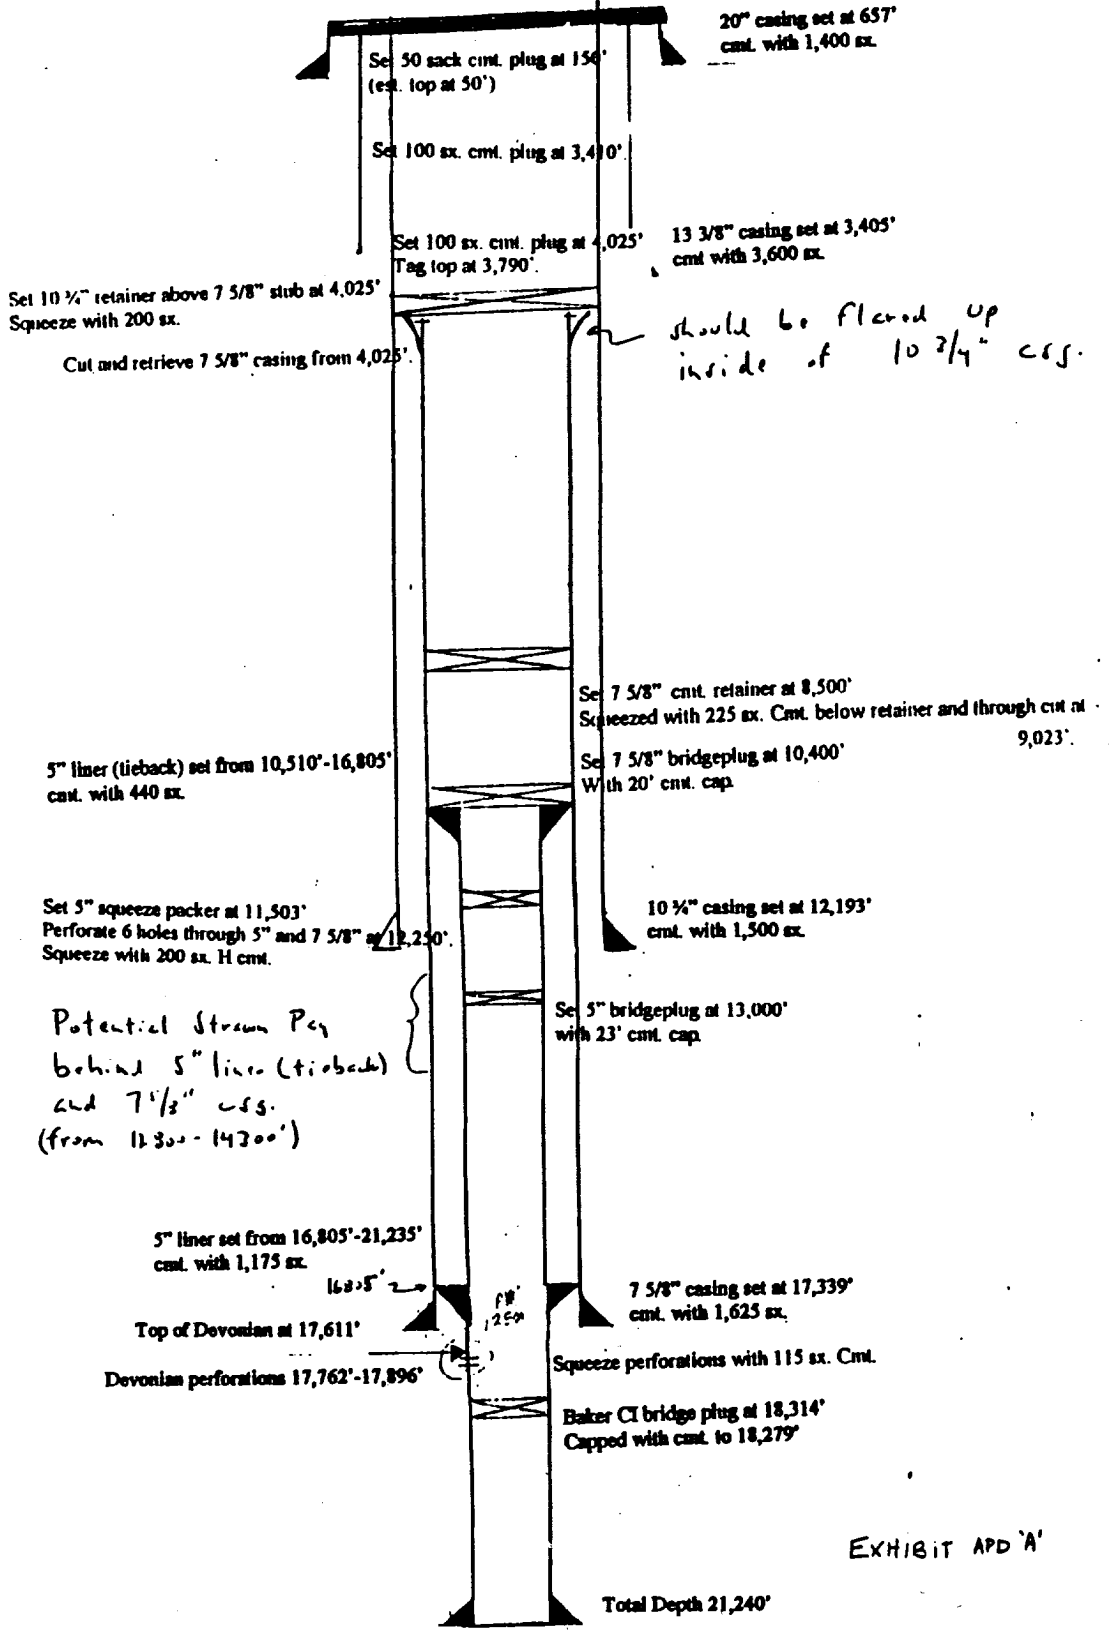 20" casing set at 657'
cmt. with 1,400 sx.
Set 50 sack cmt. plug at 150'
(est. top at 50')
Set 100 sx. cmt. plug at 3,410'.
13 3/8" casing set at 3,405'
cmt with 3,600 sx.
Set 100 sx. cmt. plug at 4,025'
Tag top at 3,790'.
Set 10 ¾" retainer above 7 5/8" stub at 4,025'
Squeeze with 200 sx.
should be flared up
inside of 10 3/4" csg.
Cut and retrieve 7 5/8" casing from 4,025'.
Set 7 5/8" cmt. retainer at 8,500'
Squeezed with 225 sx. Cmt. below retainer and through cut at
9,023'.
5" liner (tieback) set from 10,510'-16,805'
cmt. with 440 sx.
Set 7 5/8" bridgeplug at 10,400'
With 20' cmt. cap.
Set 5" squeeze packer at 11,503'
Perforate 6 holes through 5" and 7 5/8" at 12,250'.
Squeeze with 200 sx. H cmt.
10 ¾" casing set at 12,193'
cmt. with 1,500 sx.
Set 5" bridgeplug at 13,000'
with 23' cmt. cap.
Potential Strawn Pay
behind 5" liner (tieback)
and 7 5/8" csg.
(from 12300-14300')
5" liner set from 16,805'-21,235'
cmt. with 1,175 sx.
16805'
7 5/8" casing set at 17,339'
cmt. with 1,625 sx.
Top of Devonian at 17,611'
Devonian perforations 17,762'-17,896'
Squeeze perforations with 115 sx. Cmt.
Baker CI bridge plug at 18,314'
Capped with cmt. to 18,279'
EXHIBIT APD 'A'
Total Depth 21,240'